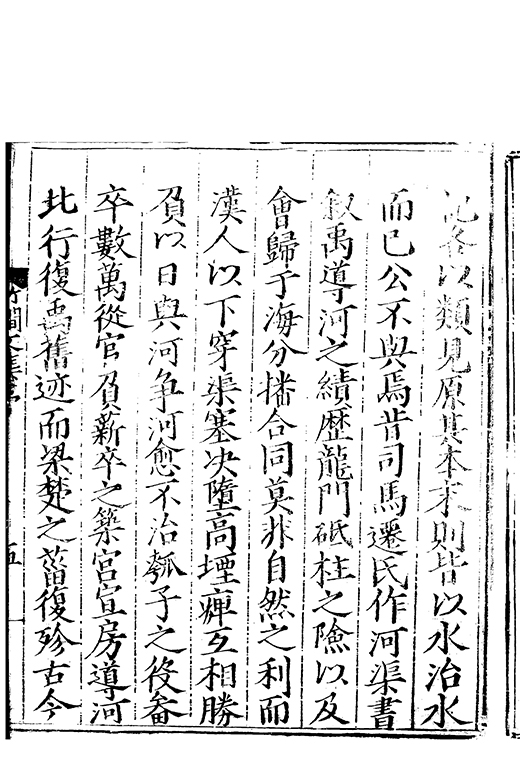 記各以類見原其本末則皆以水治水
而已公不與焉昔司馬遷氏作河渠書
叙禹導河之績歷龍門砥柱之險以及
會歸于海分播合同莫非自然之利而
漢人以下穿渠塞决墮高堙痺互相勝
負以日與河争河愈不治瓠子之役畚
卒數萬從官負薪卒之築宮宣房導河
北行復禹舊迹而梁楚之菑復殄古今
竹澗文集序
五